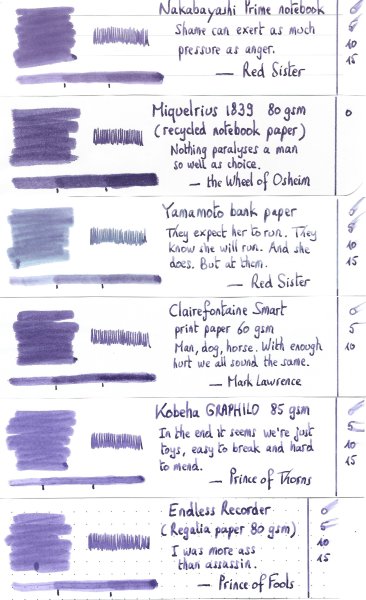 Nakabayashi Prime notebook
Shame can exert as much
pressure as anger.
— Red Sister
0
5
10
15
Miquelrius 1839 80 gsm
(recycled notebook paper)
Nothing paralyses a man
so well as choice.
— the Wheel of Osheim
0
Yamamoto bank paper
They expect her to run. They
know she will run. And she
does. But at them.
— Red Sister
0
5
10
15
Clairefontaine Smart
print paper 60 gsm
Man, dog, horse. With enough
hurt we all sound the same.
— Mark Lawrence
0
5
10
Kobeha GRAPHILO 85 gsm
In the end it seems we're just
toys, easy to break and hard
to mend.
— Prince of Thorns
0
5
10
15
Endless Recorder
(Regalia paper 80 gsm)
I was more ass
than assassin.
— Prince of Fools
0
5
10
15